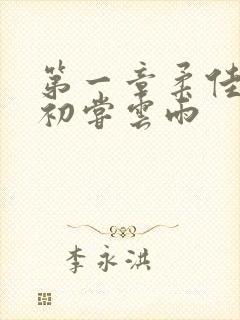 第一章柔佳
初嘗雲雨
李永洪